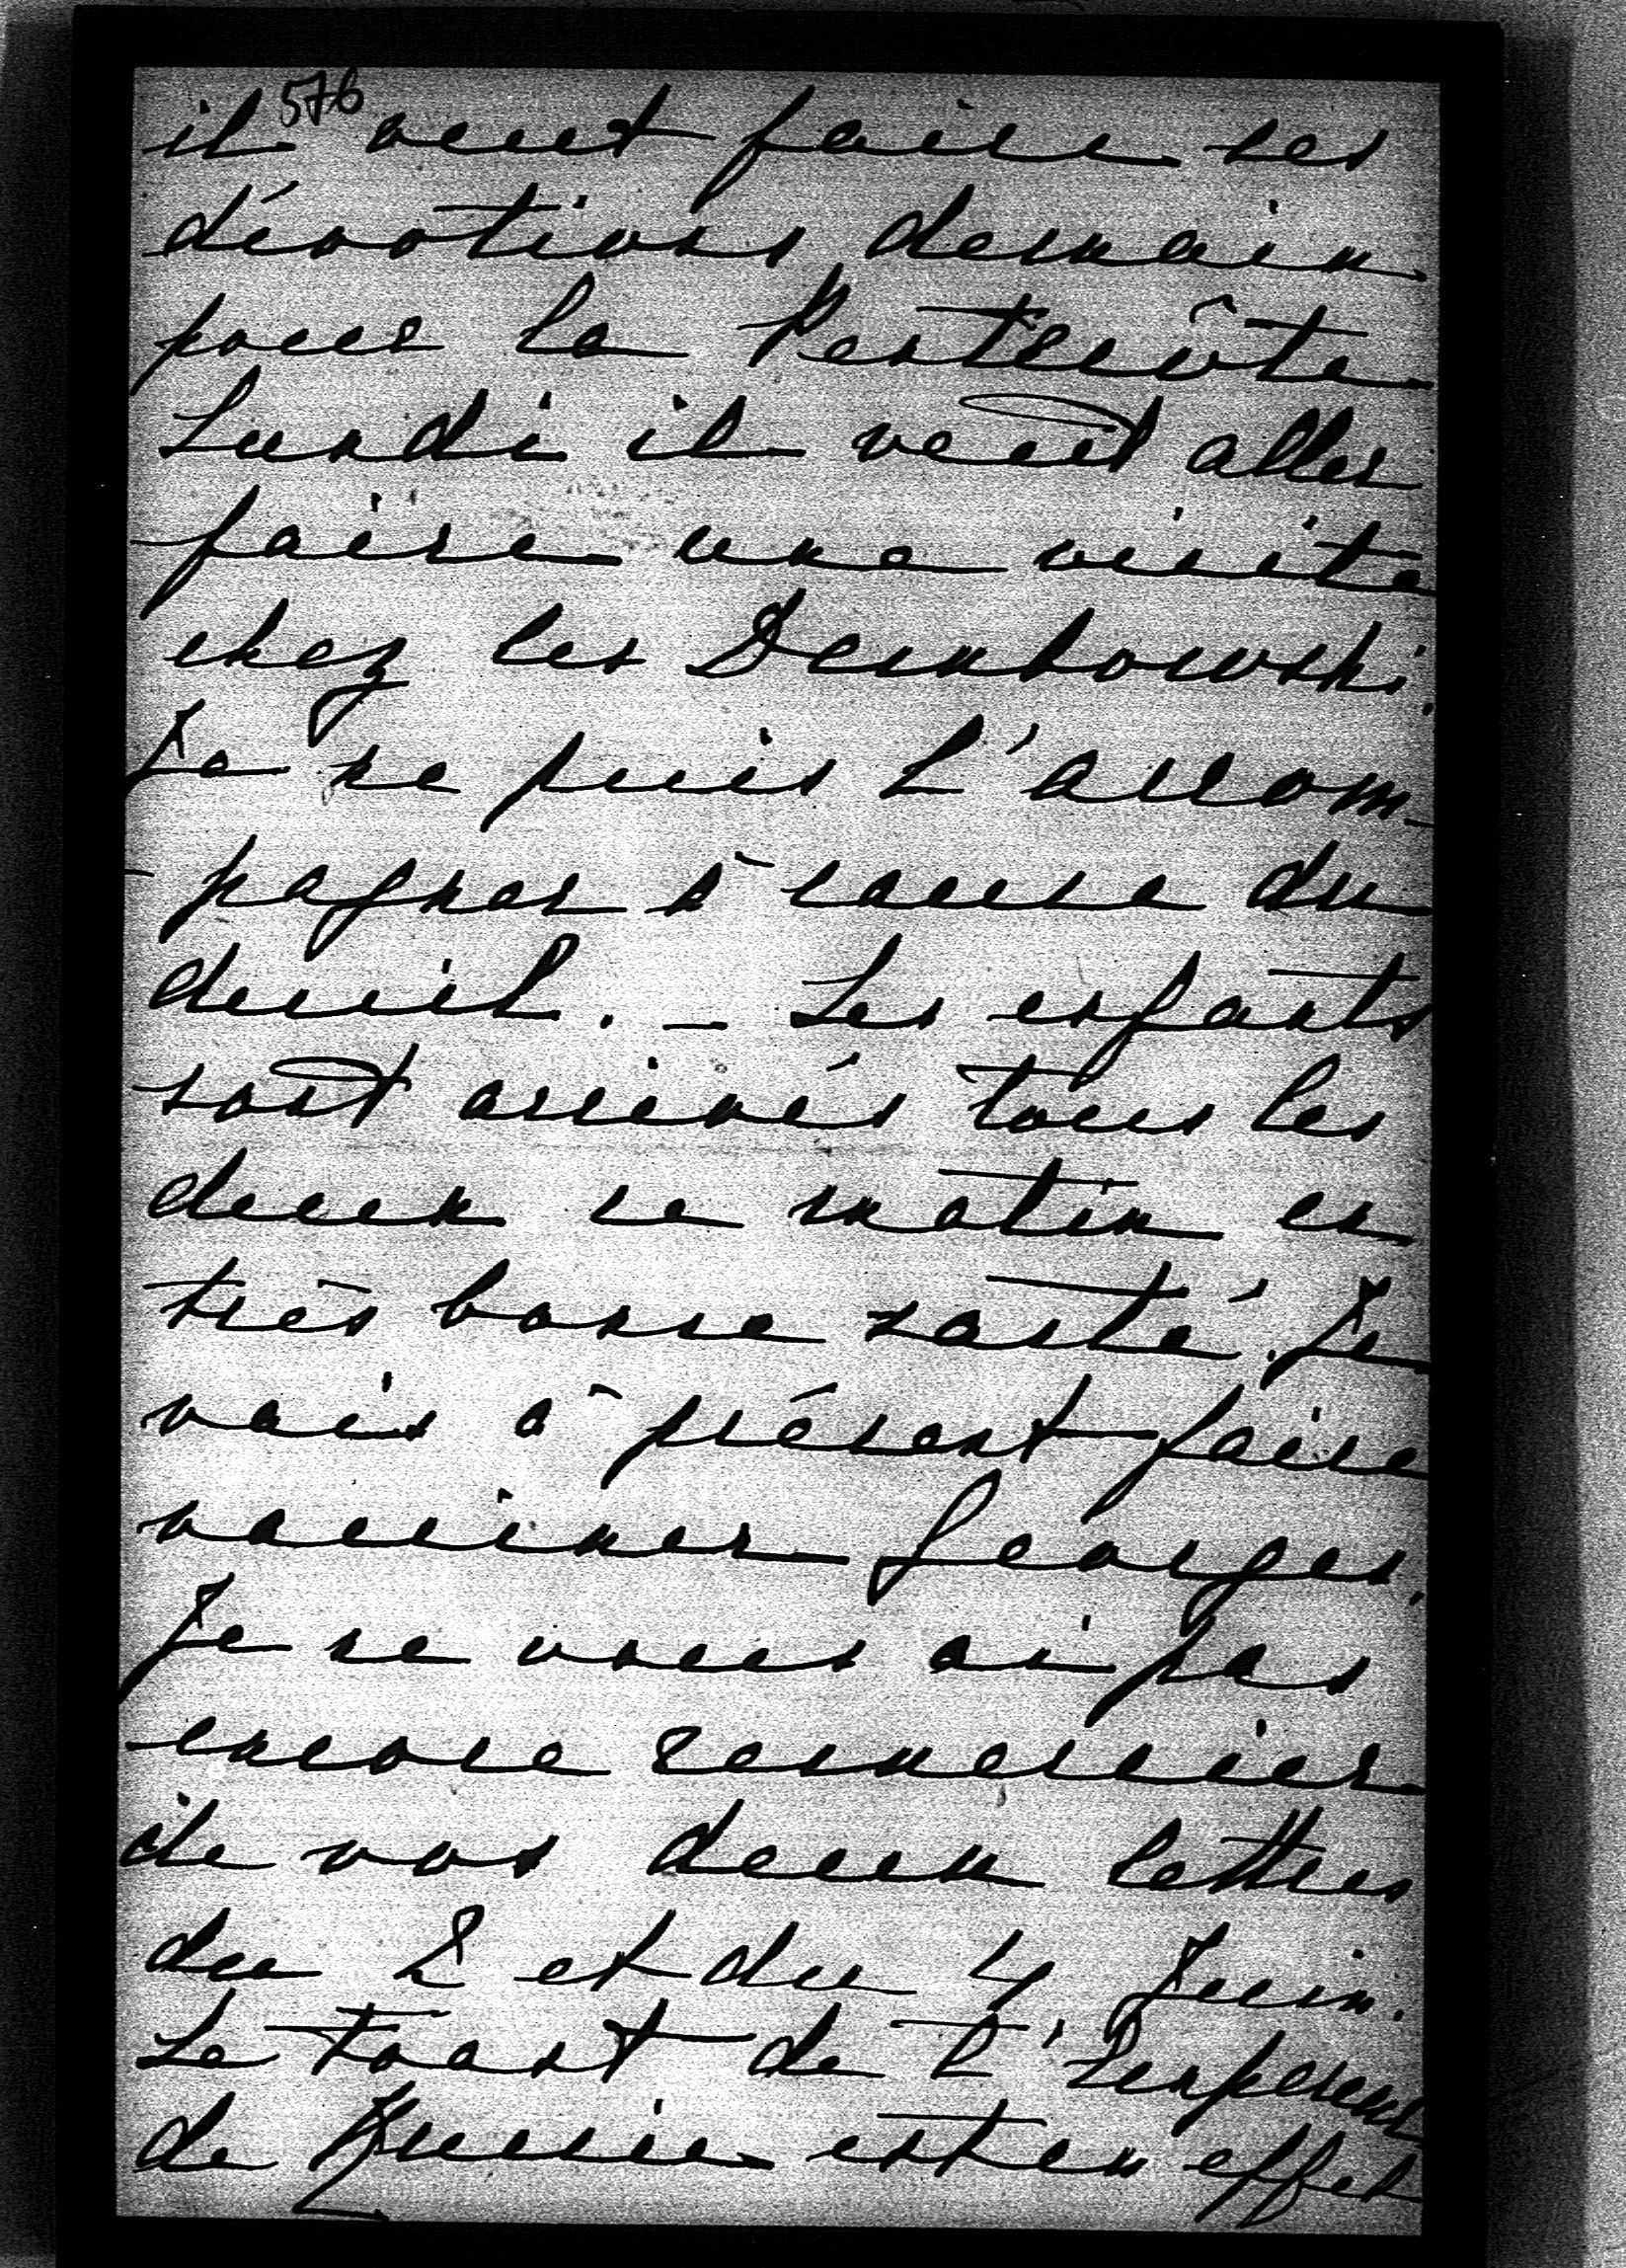 576
il veut faire ses
dévotions demain
pour la Pentecôte
Lundi il veut aller
faire une visite
chez les Dembowski.
Je ne puis l'accom-
-pagner à cause du
deuil. _ Les enfants
sont arrivés tous les
deux ce matin en
très bonne santé. Je
vais à présent faire
vacciner Georges.
Je ne vous ai pas
encore remercier
de vos deux lettres
du 2 et du 4 Juin.
Le toast de l'Empereur
de Russie est en effet